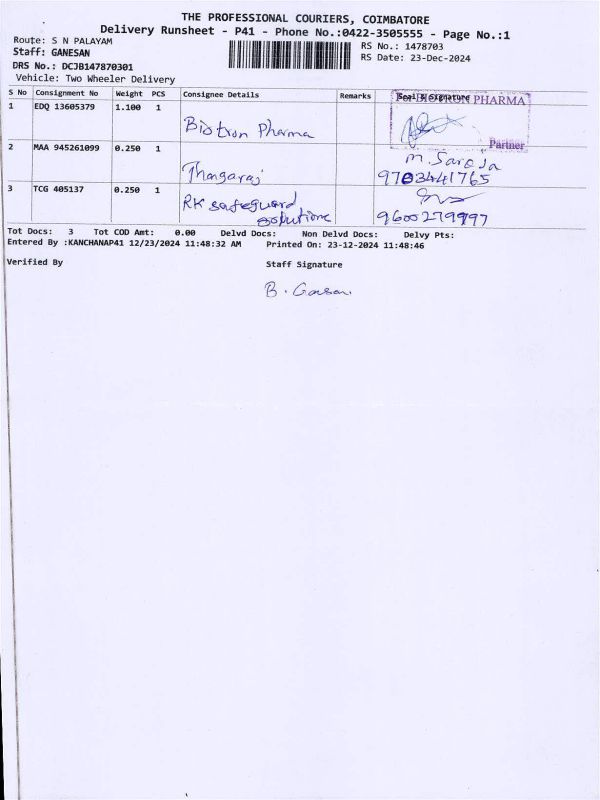 THE PROFESSIONAL COURIERS, COIMBATORE
Delivery Runsheet - P41 - Phone No.:0422-3505555 - Page No.:1
Route: S N PALAYAM
RS No.: 1478703
Staff: GANESAN
RS Date: 23-Dec-2024
DRS No.: DCJB147870301
Vehicle: Two Wheeler Delivery
S No Consignment No Weight PCS Consignee Details Remarks Seal & Signature
For BIOTRON PHARMA
1 EDQ 13605379 1.100 1
Biotron Pharma
Partner
2 MAA 945261099 0.250 1
M. Saroja
Thangaraj
9703441765
3 TCG 405137 0.250 1
RK safeguard
solutions
9600279997
Tot Docs: 3 Tot COD Amt: 0.00 Delvd Docs: Non Delvd Docs: Delvy Pts:
Entered By :KANCHANAP41 12/23/2024 11:48:32 AM Printed On: 23-12-2024 11:48:46
Verified By Staff Signature
B.